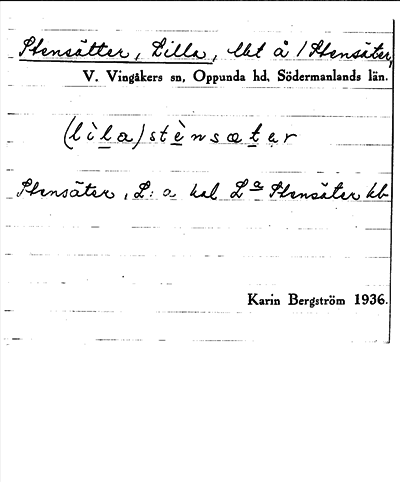 Stensätter, Lilla, lht å / Stensäter,
V. Vingåkers sn, Oppunda hd, Södermanlands län.
(lìla) stènsætər
Stensäter, L:a hal La Stensäter kb
Karin Bergström 1936.